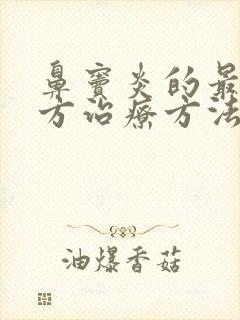 鼻窦炎的最
方治療方法
油爆香菇